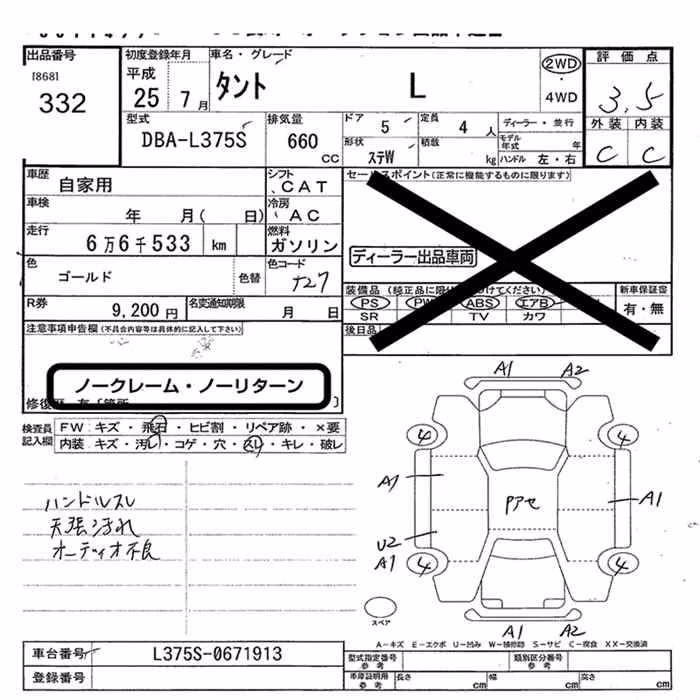 出品番号 初度登録年月 車名・グレード 評価点
18681 平成 2WD
332 25 7月 タント L ・ 3,5
4WD
型式 排気量 ドア 5 定員 4人 ディーラー・並行 外装 内装
DBA-L375S 660 モデル年式 年
cc 形状 ステW 積載 kg ハンドル 左・右 C C
車歴 自家用 シフト CAT セールスポイント(正常に機能するものに限ります)
車検 年 月( 日) 冷房 AC
走行 6万6千533 km 燃料 ガソリン ディーラー出品車両
色 ゴールド 色替 色コード T27
装備品(純正品に限り けてください) 新車保証書
R券 9,200円 名変通知期限 月 日 PS PW ABS エアB 有・無
SR TV カワ
注意事項申告欄(不具合内容等は具体的に記入して下さい) 後日品
ノークレーム・ノーリターン
修復歴
検査員 FW キズ・飛石・ヒビ割・リペア跡・×要
記入欄 内装 キズ・汚レ・コゲ・穴・スレ・キレ・破レ
A1 A2
4 4
A1 A1
ハンドルスレ Pアセ
天張汚れ
オーディオ不良 U2
A1 4 4
スペア
A1 A2
A-キズ E-エクボ U-凹み W-補修跡 S-サビ C-腐食 XX-交換済
車台番号 L375S-0671913 型式指定番号 参考 類別区分番号 参考
登録番号 車庫証明用 参考 長さ cm 幅 cm 高さ cm